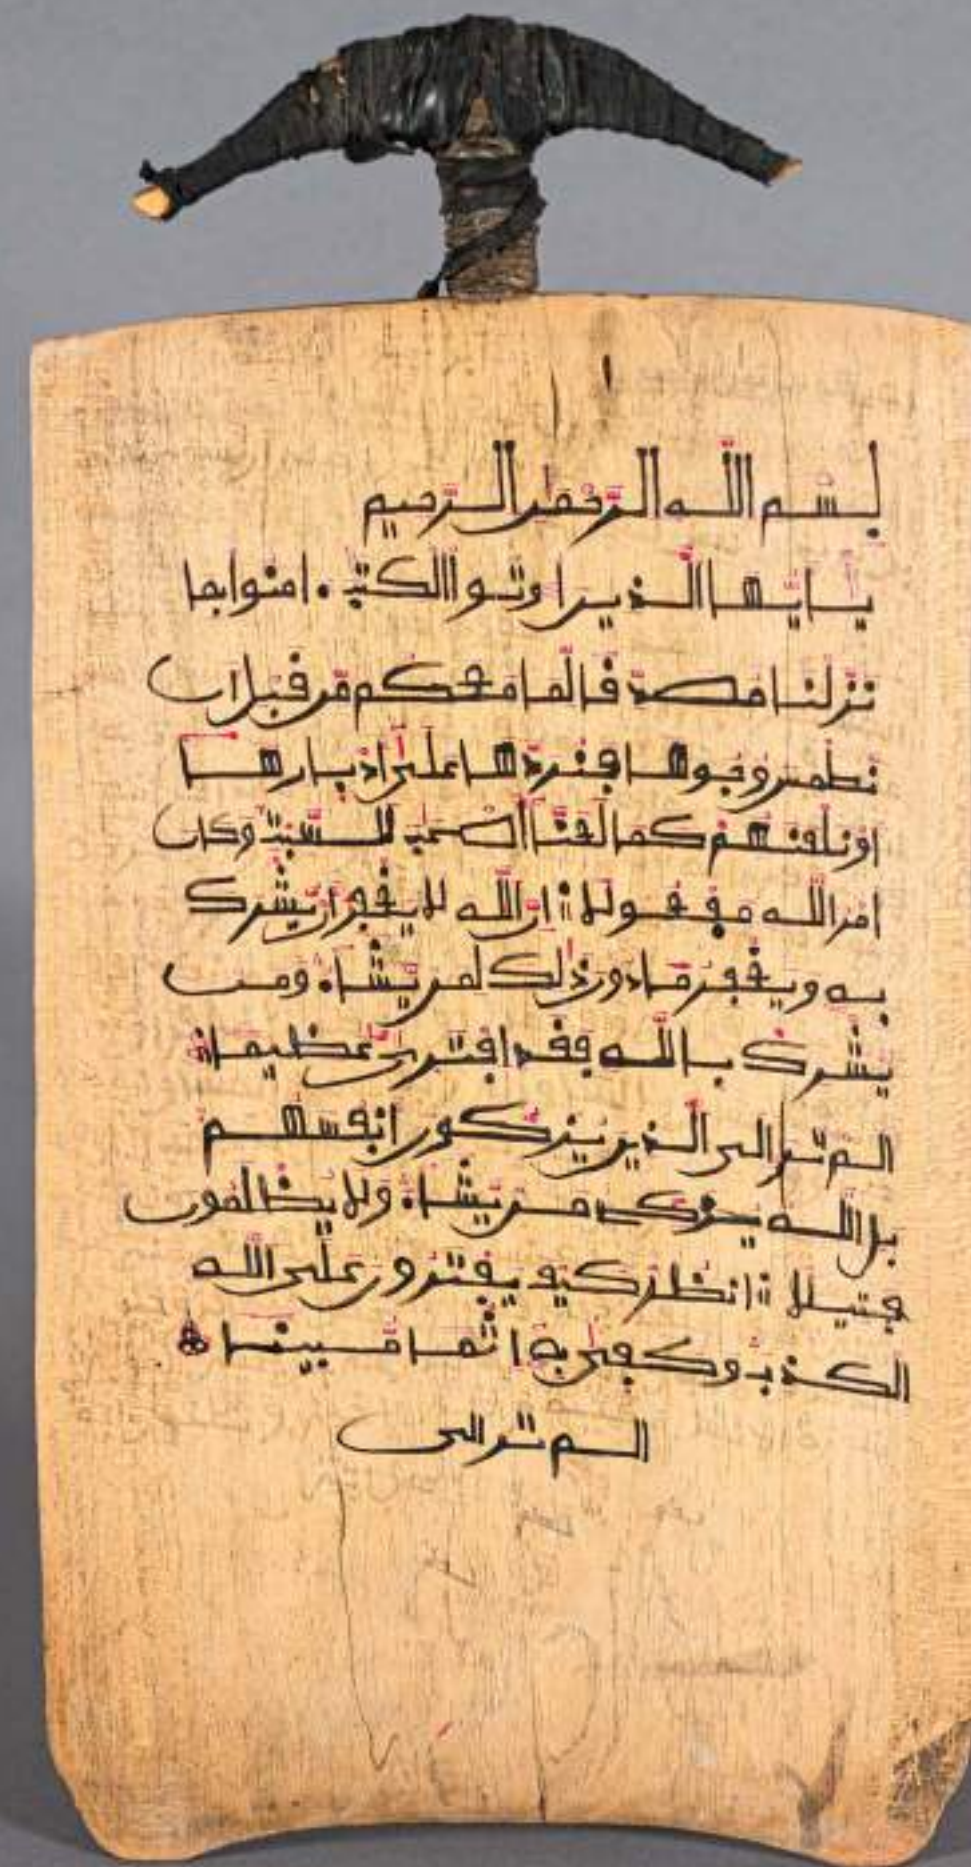 بِسْمِ اللَّهِ الرَّحْمَٰنِ الرَّحِيمِ
يَٰأَيُّهَا الَّذِينَ أُوتُوا الْكِتَٰبَ ءَامِنُوا بِمَا
نَزَّلْنَا مُصَدِّقًا لِّمَا مَعَكُم مِّن قَبْلِ أَن
نَّطْمِسَ وُجُوهًا فَنَرُدَّهَا عَلَىٰ أَدْبَارِهَا
أَوْ نَلْعَنَهُمْ كَمَا لَعَنَّا أَصْحَٰبَ السَّبْتِ وَكَانَ
أَمْرُ اللَّهِ مَفْعُولًا إِنَّ اللَّهَ لَا يَغْفِرُ أَن يُّشْرَكَ
بِهِ وَيَغْفِرُ مَا دُونَ ذَٰلِكَ لِمَن يَّشَاءُ وَمَن
يُّشْرِكْ بِاللَّهِ فَقَدِ افْتَرَىٰ عَظِيمًا
أَلَمْ تَرَ إِلَى الَّذِينَ يُزَكُّونَ أَنفُسَهُم
بَلِ اللَّهُ يُزَكِّي مَن يَّشَاءُ وَلَا يُظْلَمُونَ
فَتِيلًا انظُرْ كَيْفَ يَفْتَرُونَ عَلَى اللَّهِ
الْكَذِبَ وَكَفَىٰ بِهِ إِثْمًا مُّبِينًا
الم تر الى